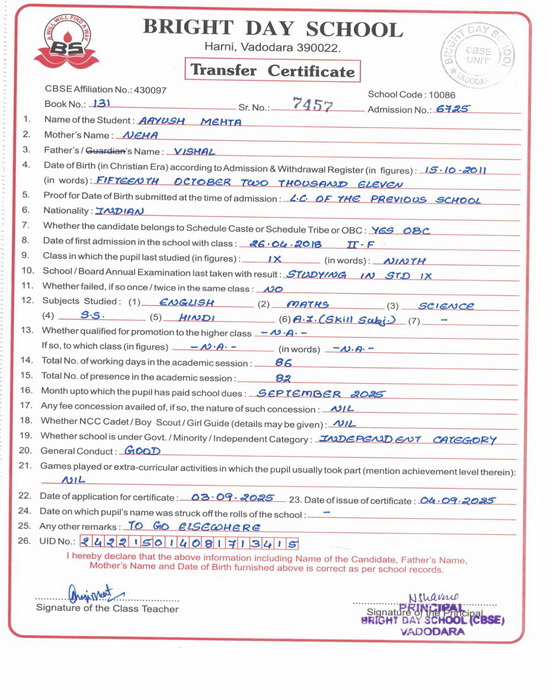 A WILL WILL FIND A WAY
BS
BRIGHT DAY SCHOOL
Harni, Vadodara 390022.
Transfer Certificate
BRIGHT DAY SCHOOL
CBSE
UNIT
VADODARA
CBSE Affiliation No.: 430097 School Code : 10086
Book No.: 131 Sr. No.: 7457 Admission No.: 6725
1. Name of the Student : AAYUSH MEHTA
2. Mother's Name : NEHA
3. Father's / Guardian's Name : VISHAL
4. Date of Birth (in Christian Era) according to Admission & Withdrawal Register (in figures) : 15-10-2011
(in words) : FIFTEENTH OCTOBER TWO THOUSAND ELEVEN
5. Proof for Date of Birth submitted at the time of admission : L.C. OF THE PREVIOUS SCHOOL
6. Nationality : INDIAN
7. Whether the candidate belongs to Schedule Caste or Schedule Tribe or OBC : YES OBC
8. Date of first admission in the school with class : 26.04.2018 II-F
9. Class in which the pupil last studied (in figures) : IX (in words) : NINTH
10. School / Board Annual Examination last taken with result : STUDYING IN STD IX
11. Whether failed, if so once / twice in the same class : NO
12. Subjects Studied : (1) ENGLISH (2) MATHS (3) SCIENCE
(4) S.S. (5) HINDI (6) A.I. (Skill Subj.) (7) -
13. Whether qualified for promotion to the higher class - N.A. -
If so, to which class (in figures) - N.A. - (in words) - N.A. -
14. Total No. of working days in the academic session : 86
15. Total No. of presence in the academic session : 82
16. Month upto which the pupil has paid school dues : SEPTEMBER 2025
17. Any fee concession availed of, if so, the nature of such concession : NIL
18. Whether NCC Cadet / Boy Scout / Girl Guide (details may be given) : NIL
19. Whether school is under Govt. / Minority / Independent Category : INDEPENDENT CATEGORY
20. General Conduct : GOOD
21. Games played or extra-curricular activities in which the pupil usually took part (mention achievement level therein):
NIL
22. Date of application for certificate : 03.09.2025 23. Date of issue of certificate : 04.09.2025
24. Date on which pupil's name was struck off the rolls of the school : -
25. Any other remarks : TO GO ELSEWHERE
26. UID No.: 242215014081713415
I hereby declare that the above information including Name of the Candidate, Father's Name,
Mother's Name and Date of Birth furnished above is correct as per school records.
Signature of the Class Teacher
Signature of the Principal
PRINCIPAL
BRIGHT DAY SCHOOL (CBSE)
VADODARA